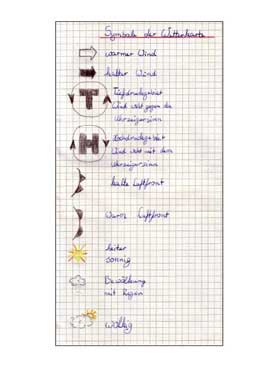 Symbole der Wetterkarte
warmer Wind
kalter Wind
T
Tiefdruckgebiet
Wind weht gegen den
Uhrzeigersinn
H
Hochdruckgebiet
Wind weht mit dem
Uhrzeigersinn
kalte Luftfront
Warm Luftfront
heiter
sonnig
Bewölkung
mit Regen
wolkig